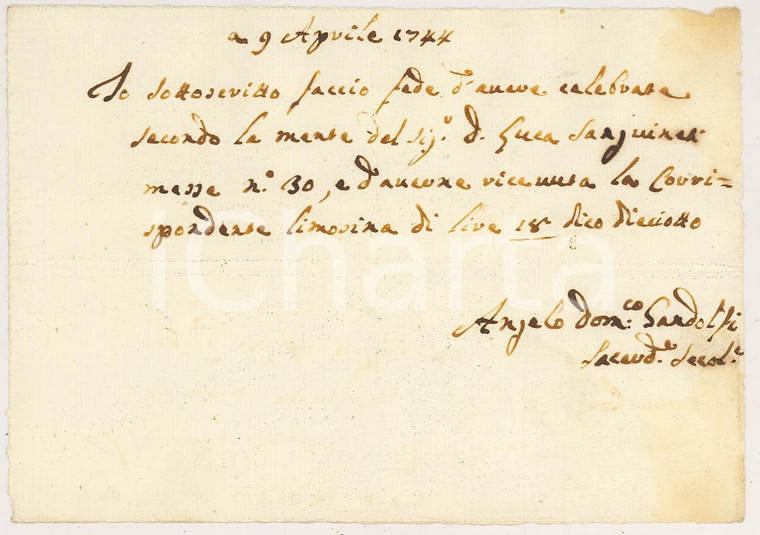 a 9 Aprile 1744
Io sottoscritto faccio fede d'avere celebrate
secondo la mente del sig.ʳ d. Luca Sanguinet
messe n.º 30, e d'averne ricevuta la Corri=
spondente limosina di lire 18 dico dieciotto
iCharta
Angelo Dom.ᶜᵒ Gandolfi
Sacerd.ᵉ Secol.ᵉ